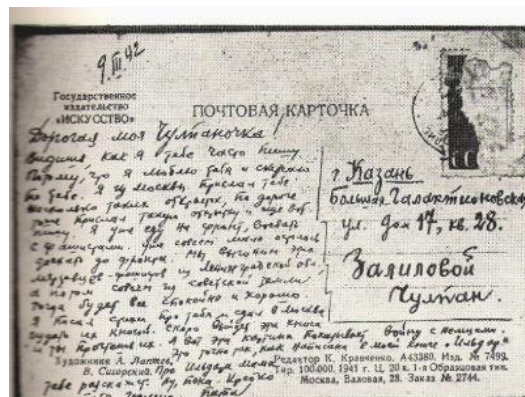 9.III.42
Государственное
издательство
«ИСКУССТВО»
ПОЧТОВАЯ КАРТОЧКА
Дорогая моя Чулпаночка!
Видишь как я тебе часто пишу.
Потому, что я люблю тебя и скучаю
по тебе. Я из Москвы прислал тебе
несколько таких открыток, по дороге
тоже прислал такую открытку и еще вот
пишу. Я уже еду на фронт, воевать
с фашистами. Уже совсем мало осталось
доехать до фронта. Мы выгоним этих
мерзавцев-фашистов из Ленинградской обл.,
а потом совсем из советской земли
тогда будет все спокойно и хорошо.
Я писал стихи про тебя и сдал в Москве
издать их книгой. Скоро выйдет эта книга
и ты прочтешь их. А вот эта картина показывает войну с немцами.
Это точно так, как написано в моей книге «Ильдар»
Про Ильдара мама
тебе расскажет. Ну, пока. Крепко
папа
г. Казань
Большая Галактионовская
ул. Дом 17, кв. 28.
Залиловой
Чулпан.
Художник А. Лаптев,
В. Сигорский.
Редактор К. Кравченко. А43380. Изд. № 7499.
Тир. 100.000. 1941 г. Ц. 20 к. 1-я Образцовая тип.
Москва, Валовая, 28. Заказ № 2744.